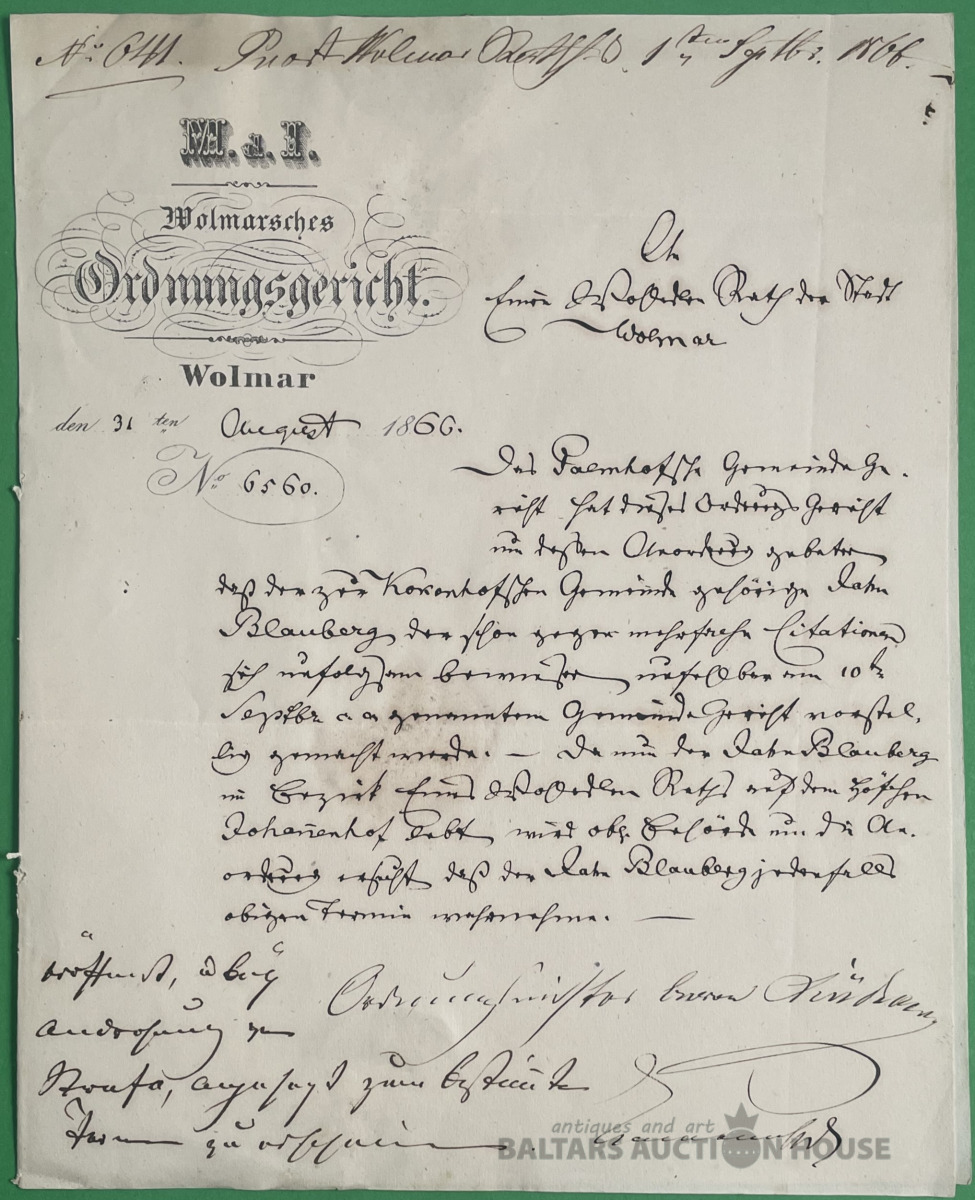 No 641. Praes Wolmar Rathh. d. 1ten Septbr. 1866.
M. a. I.
Wolmarsches
Ordnungsgericht.
Wolmar
den 31 ten August 1866.
No 6560.
An
Einen WohlEdlen Rath der Stadt
Wolmar
Das Gemeinde Ge-
richt hat dieses Ordnungs Gericht
um dessen Anordnung gebeten
daß der zur Kokenhofschen Gemeinde gehörige Jahn
Blauberg, der schon gegen mehrfache Citationen
sich unfolgsam bewiesen unfehlbar am 10ten
Septbr a a genanntem Gemeinde Gericht vorstel-
lig gemacht werde. — Da nun der Jahn Blauberg
im Bezirk Eines WohlEdlen Raths auf dem Höfchen
Johannenhof lebt, wird obge Behörde um die An-
ordnung ersucht daß der Jahn Blauberg jedenfalls
obigen Termin wahrnehme. —
Ordnungsrichter
eröffnet, u bey
Androhung von
Strafe, angesagt zum bestimten
Termin zu erscheinen
antiques and art
BALTARS AUCTION HOUSE